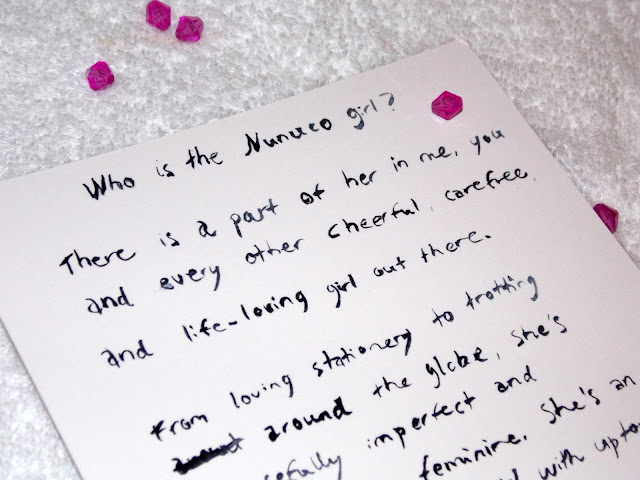 Who is the Nunuco girl?
There is a part of her in me, you
and every other cheerful, carefree,
and life-loving girl out there.
From loving stationery to trotting
around the globe, she's
imperfect and
feminine. She's an
with upto